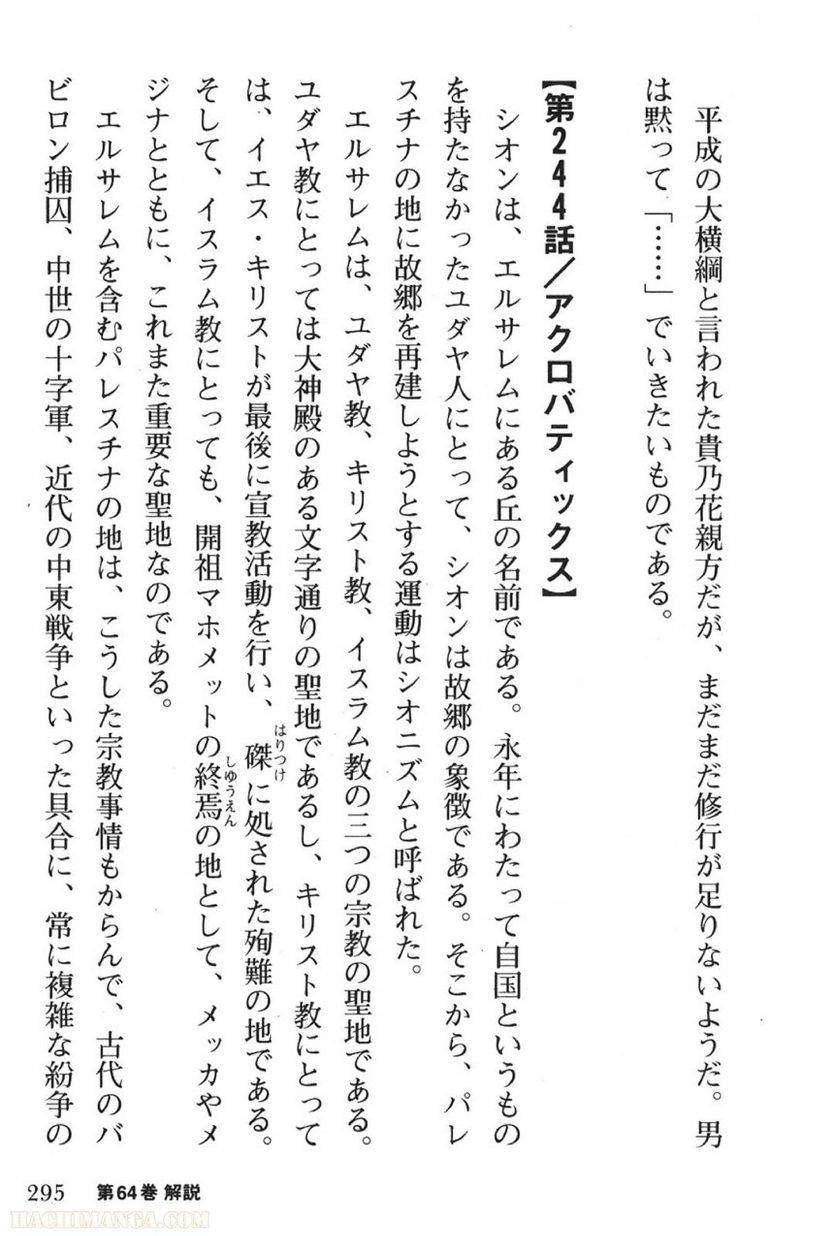 平成の大横綱と言われた貴乃花親方だが、まだまだ修行が足りないようだ。男
は黙って「……」でいきたいものである。
【第244話／アクロバティックス】
シオンは、エルサレムにある丘の名前である。永年にわたって自国というもの
を持たなかったユダヤ人にとって、シオンは故郷の象徴である。そこから、パレ
スチナの地に故郷を再建しようとする運動はシオニズムと呼ばれた。
エルサレムは、ユダヤ教、キリスト教、イスラム教の三つの宗教の聖地である。
ユダヤ教にとっては大神殿のある文字通りの聖地であるし、キリスト教にとって
は、イエス・キリストが最後に宣教活動を行い、磔に処された殉難の地である。
はりつけ
そして、イスラム教にとっても、開祖マホメットの終焉の地として、メッカやメ
しゆうえん
ジナとともに、これまた重要な聖地なのである。
エルサレムを含むパレスチナの地は、こうした宗教事情もからんで、古代のバ
ビロン捕囚、中世の十字軍、近代の中東戦争といった具合に、常に複雑な紛争の
295 第64巻 解説
HACHIMANGA.COM